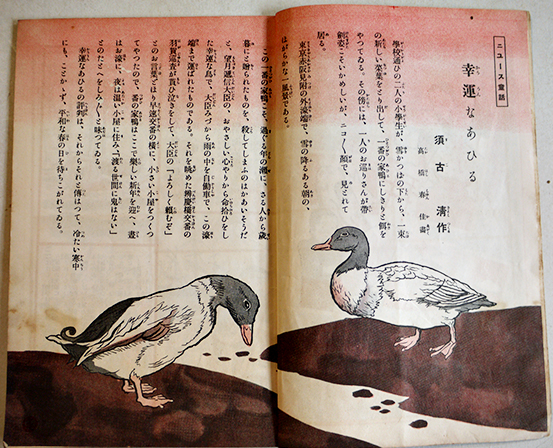 ニュース童話
幸運なあひる
須古清作
高橋春佳畫
學校通ひの二人の小學生が、雪かつぱの下から、一束
の新しい葉葉をとり出して、一番の家鴨にしきりと餌を
やつてゐる。その傍には、一人のお巡りさんが帶
劍姿こそいかめしいが、ニコ〱顏で、見とれて
居る。
東京赤坂見附の外濠端で、雪の降るある朝の、
ほがらかな一風景である。
この一番の家鴨こそ、過ぐる年の瀨に、さる人から歲
暮にと贈られたものを、殺してしまふのはかあいさうだ
と、望月遞信大臣の、おやさしい心やりから命拾ひをし
た幸運な鳥で、大臣みづから雨の中を自動車で、この濠
端まで運ばれたものである。それを眺めた辨慶橋交番の
羽賀巡査が貰ひ泣きをして、大臣の『よろしく賴むぞ』
とのお言葉どほり早速交番の橫に、小さい小屋をつくつ
てやつたので、番の家鴨はここで樂しい新年を迎へ、晝
はお濠に、夜は溫い小屋に住み『渡る世間に鬼はない』
とのたとへをしみ〲と味つてゐる。
幸運なあひるの評判は、それからそれと傳はつて、冷たい寒中
にも、ことかゝず、平和な春の日を待ちこがれてゐる。